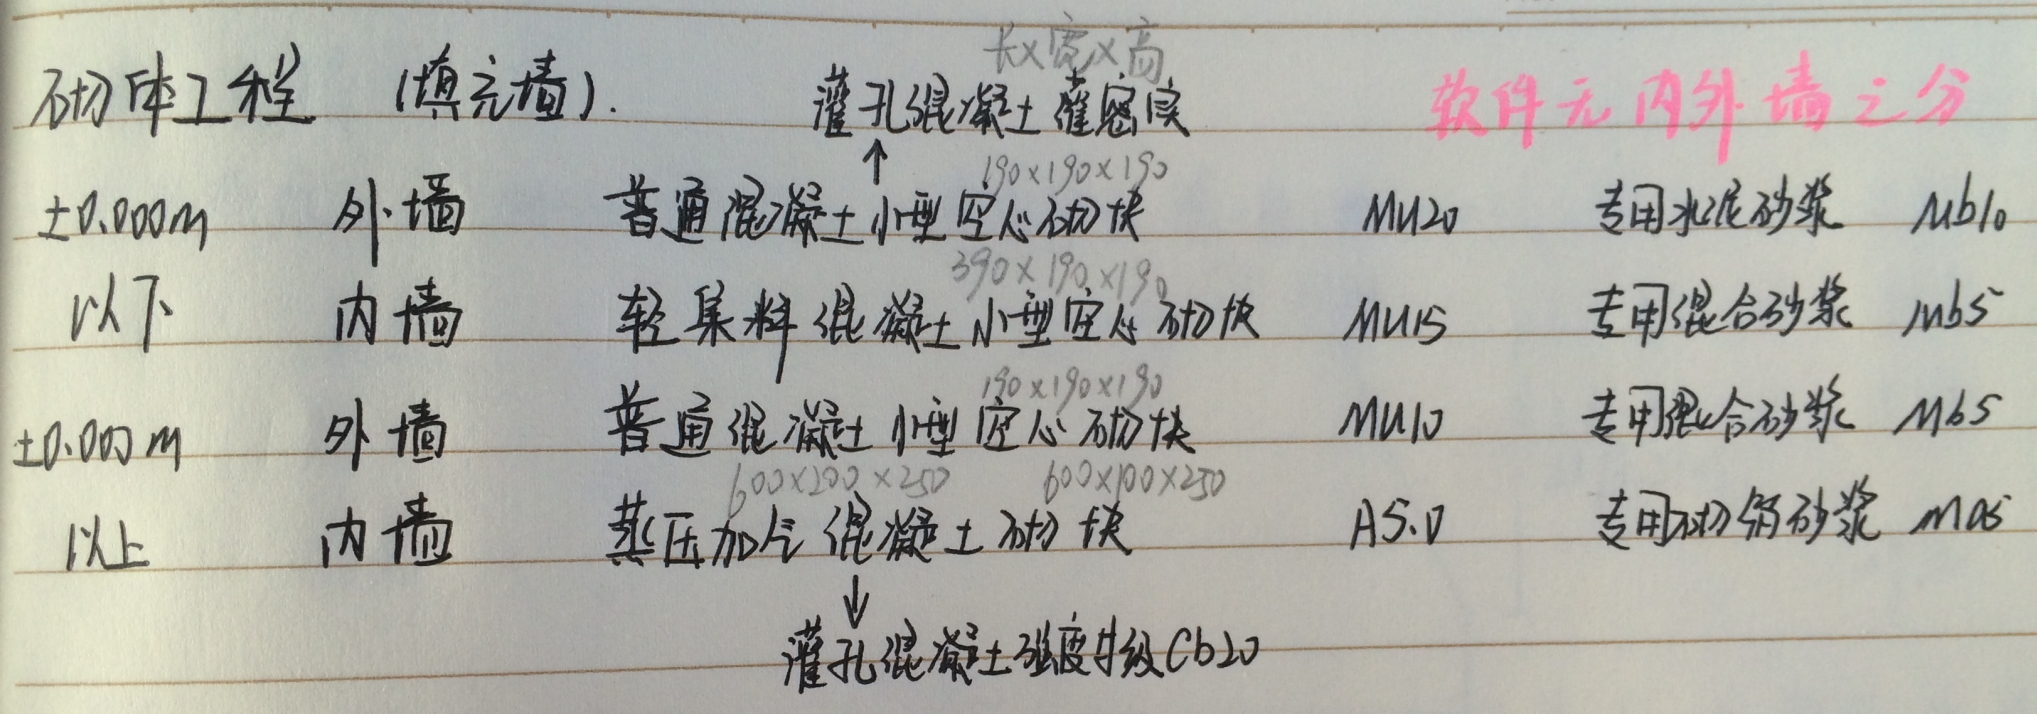 长×宽×高
砌体工程 (填充墙). 灌孔混凝土灌密实 软件无内外墙之分
↑ 190×190×190
±0.000m 外墙 普通混凝土小型空心砌块 MU20 专用水泥砂浆 Mb10
390×190×190
以下 内墙 轻集料混凝土小型空心砌块 MU15 专用混合砂浆 Mb5
190×190×190
±0.000m 外墙 普通混凝土小型空心砌块 MU10 专用混合砂浆 Mb5
600×200×250 600×100×250
以上 内墙 蒸压加气混凝土砌块 A5.0 专用砌筑砂浆 Ma5
↓
灌孔混凝土强度等级Cb20